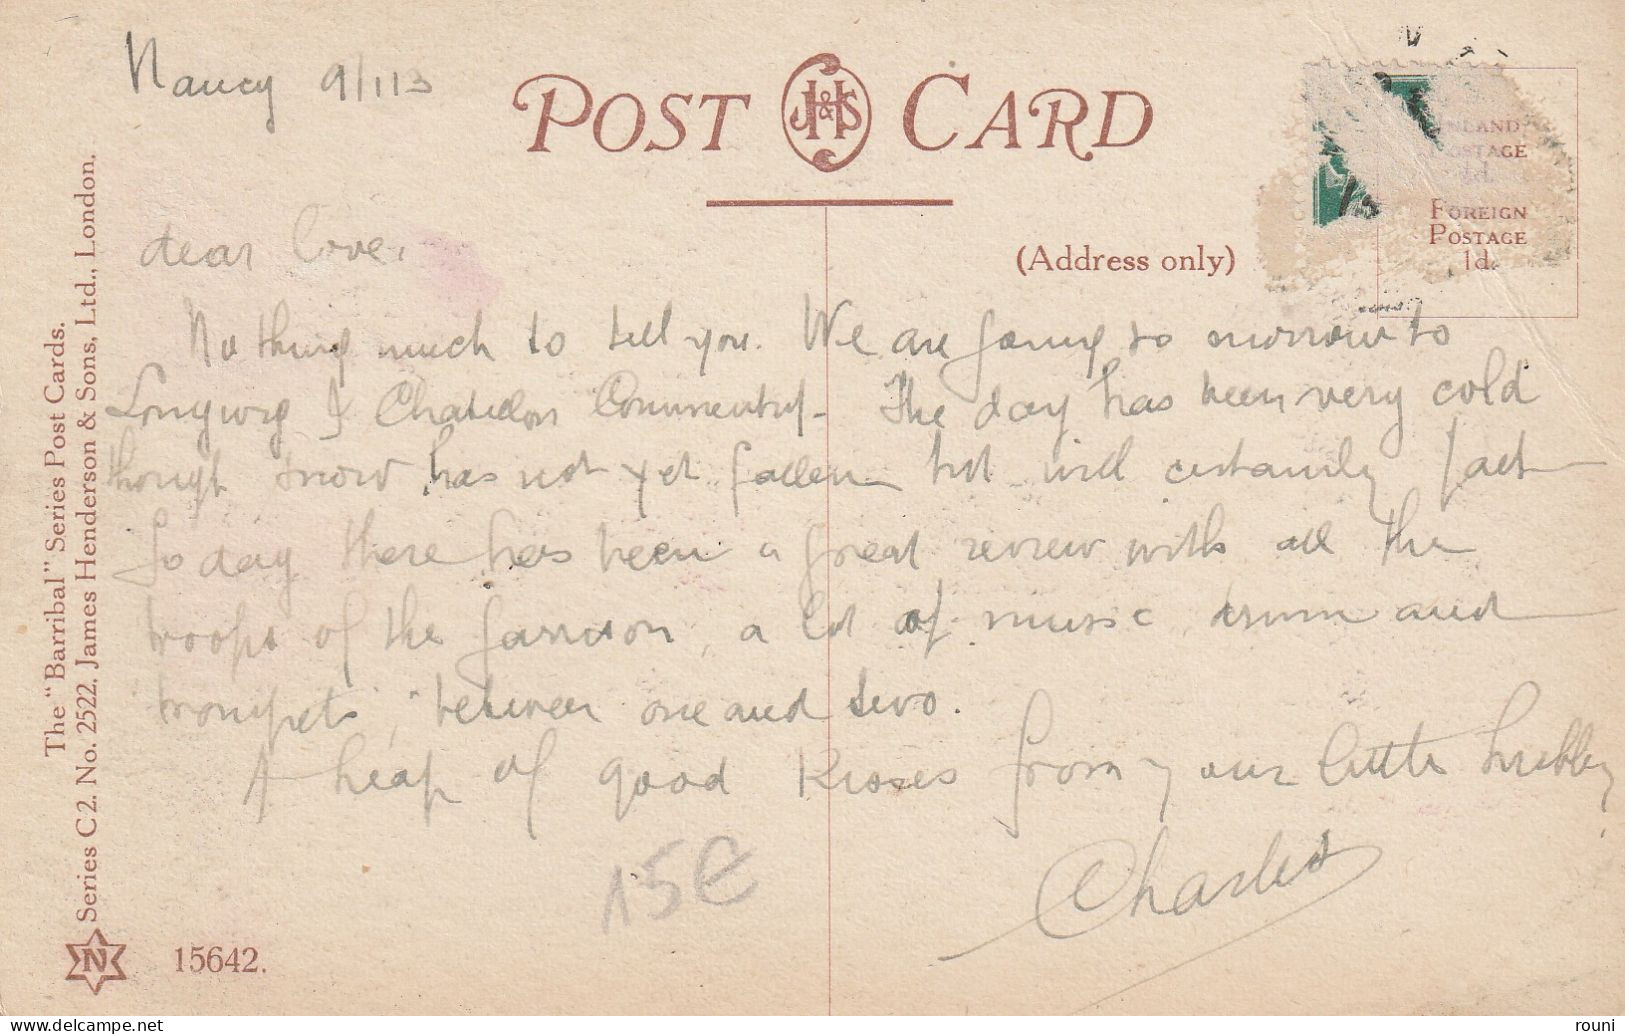 Nancy 9/1 13
POST J.H&S CARD
(Address only)
INLAND
POSTAGE
½d.
FOREIGN
POSTAGE
1d.
dear love,
Nothing much to tell you. We are going to morrow to
Longwy & Chatillon Commentry. The day has been very cold
though snow has not yet fallen but will certainly fall
To day there has been a great review with all the
troops of the garrison, a lot of music drum and
trompets, between one and two.
A heap of good kisses from your little hubby
Charles
15€
The "Barribal" Series Post Cards.
Series C 2. No. 2522. James Henderson & Sons, Ltd., London.
N 15642.
delcampe.net
rouni